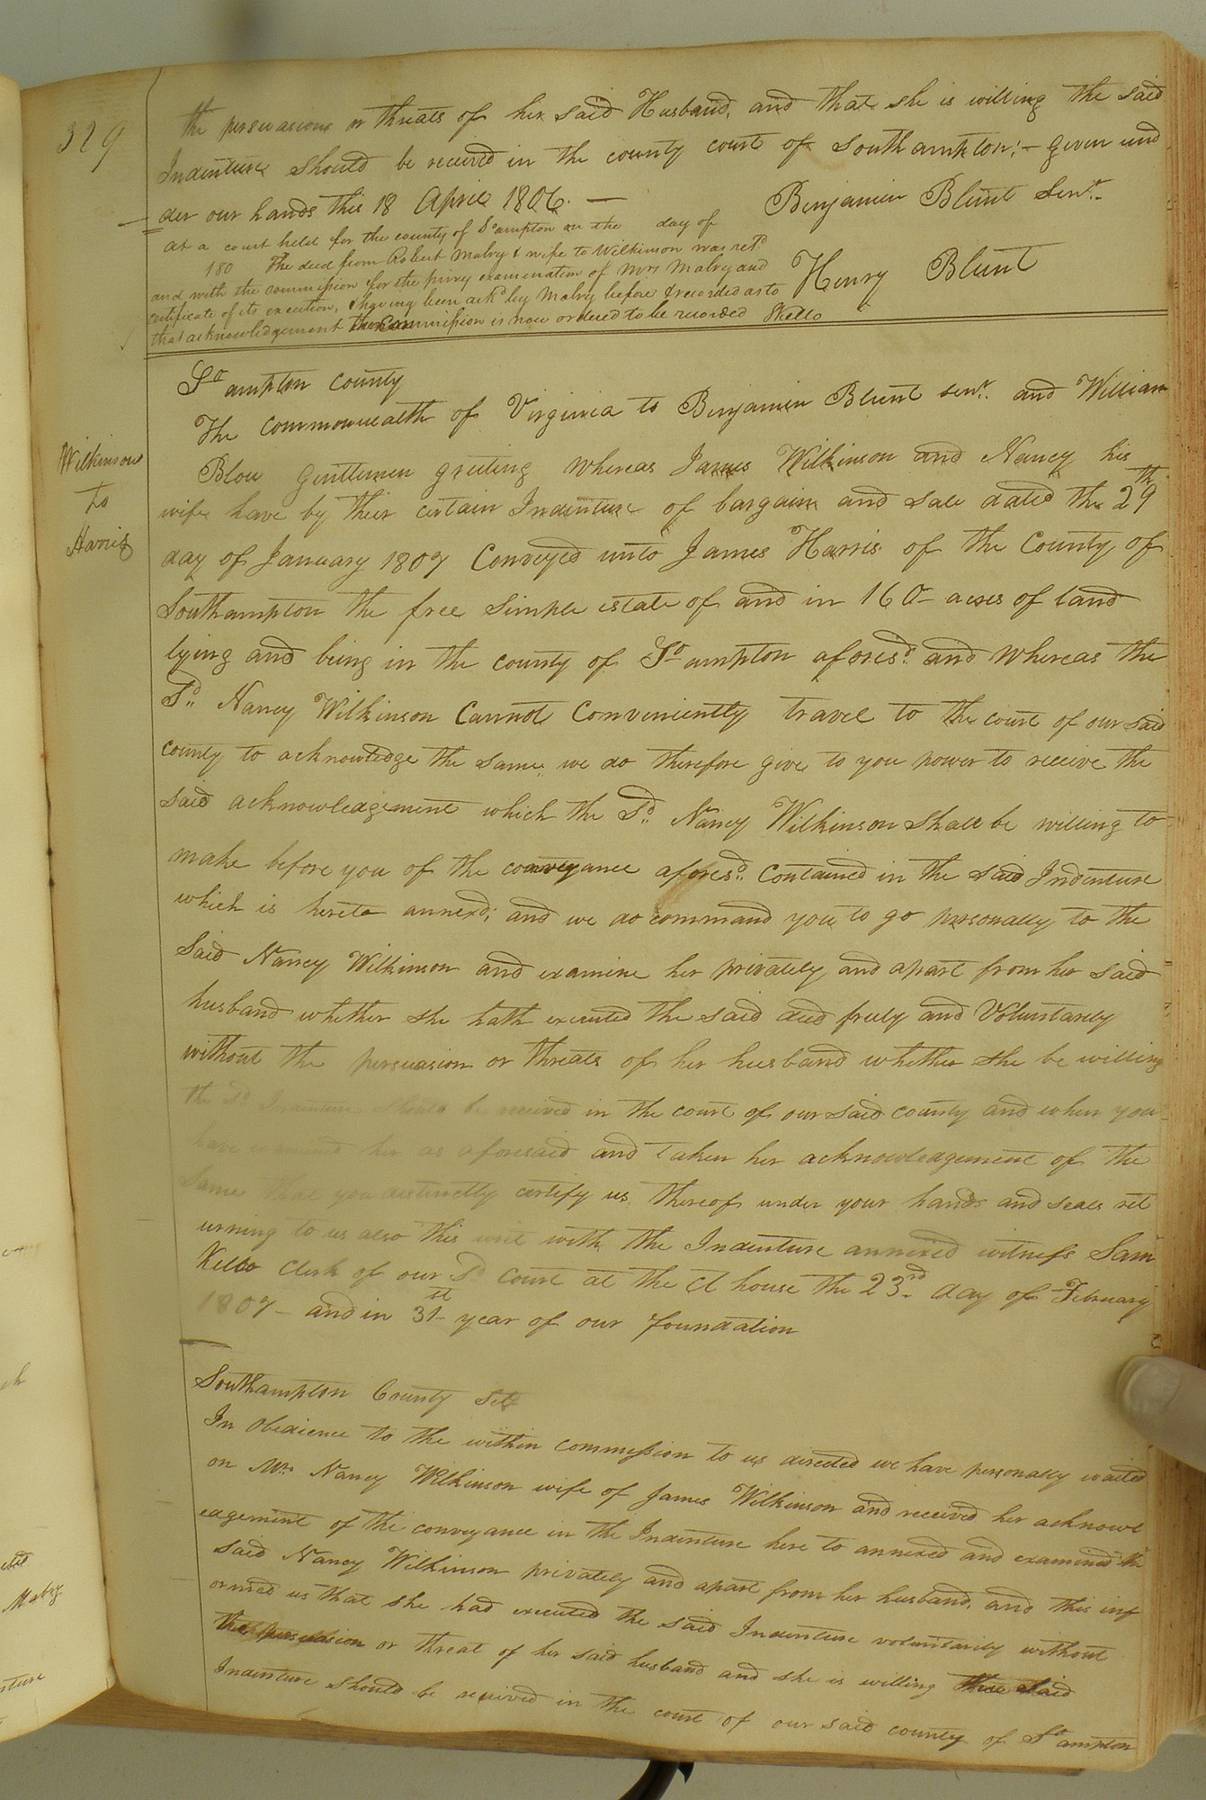 329
the persuasions or threats of her said Husband, and that she is willing the said
Indenture should be received in the county court of Southampton; – given und
der our hands this 18 April 1806. –
Benjamin Blunt Senr.
Henry Blunt
at a court held for the county of So ampton on the day of
180 The deed from Robert Mabry & wife to Wilkinson was retd
and with the commission for the privy examination of Mrs Mabry and
certificate of its execution, & having been ackd by Mabry before & recorded as to
that acknowledgement the commission is now ordered to be recorded SKello
So ampton County
The Commonwealth of Virginia to Benjamin Blunt senr. and William
Wilkinson
to
Harris
Blow Gentlemen greeting Whereas James Wilkinson and Nancy his
wife have by their certain Indenture of bargain and sale dated the 29th
day of January 1807 Conveyed unto James Harris of the County of
Southampton the free Simple estate of and in 160– acres of land
lying and being in the county of So ampton aforesd. and Whereas the
Sd. Nancy Wilkinson Cannot Conveniently travel to the court of our said
county to acknowledge the same, we do therefore give to you power to receive the
said acknowledgement which the Sd. Nancy Wilkinson shall be willing to
make before you of the conveyance aforesd. Contained in the said Indenture
which is hereto annexd; and we do command you to go personally to the
Said Nancy Wilkinson and examine her privately and apart from her said
husband whether she hath executed the said deed freely and Voluntarily
without the persuasion or threats of her husband whether she be willing
the Sd Indenture should be received in the court of our said county and when you
have examined her as aforesaid and taken her acknowledgement of the
Same that you distinctly certify us thereof under your hands and seals ret
urning to us also this writ with the Indenture annexed witness Sam
Kello Clerk of our Sd Court at the Ct house the 23rd. day of February
1807 – and in 31st year of our foundation
Southampton County Sct
In Obedience to the within commission to us directed we have personally waited
on Mrs Nancy Wilkinson wife of James Wilkinson and received her acknowl
edgement of the conveyance in the Indenture here to annexed and examined the
said Nancy Wilkinson privately and apart from her husband, and this inf
ormed us that she had executed the said Indenture voluntarily without
the persuasion or threat of her said husband and she is willing said
Indenture should be received in the court of our said county of So ampton